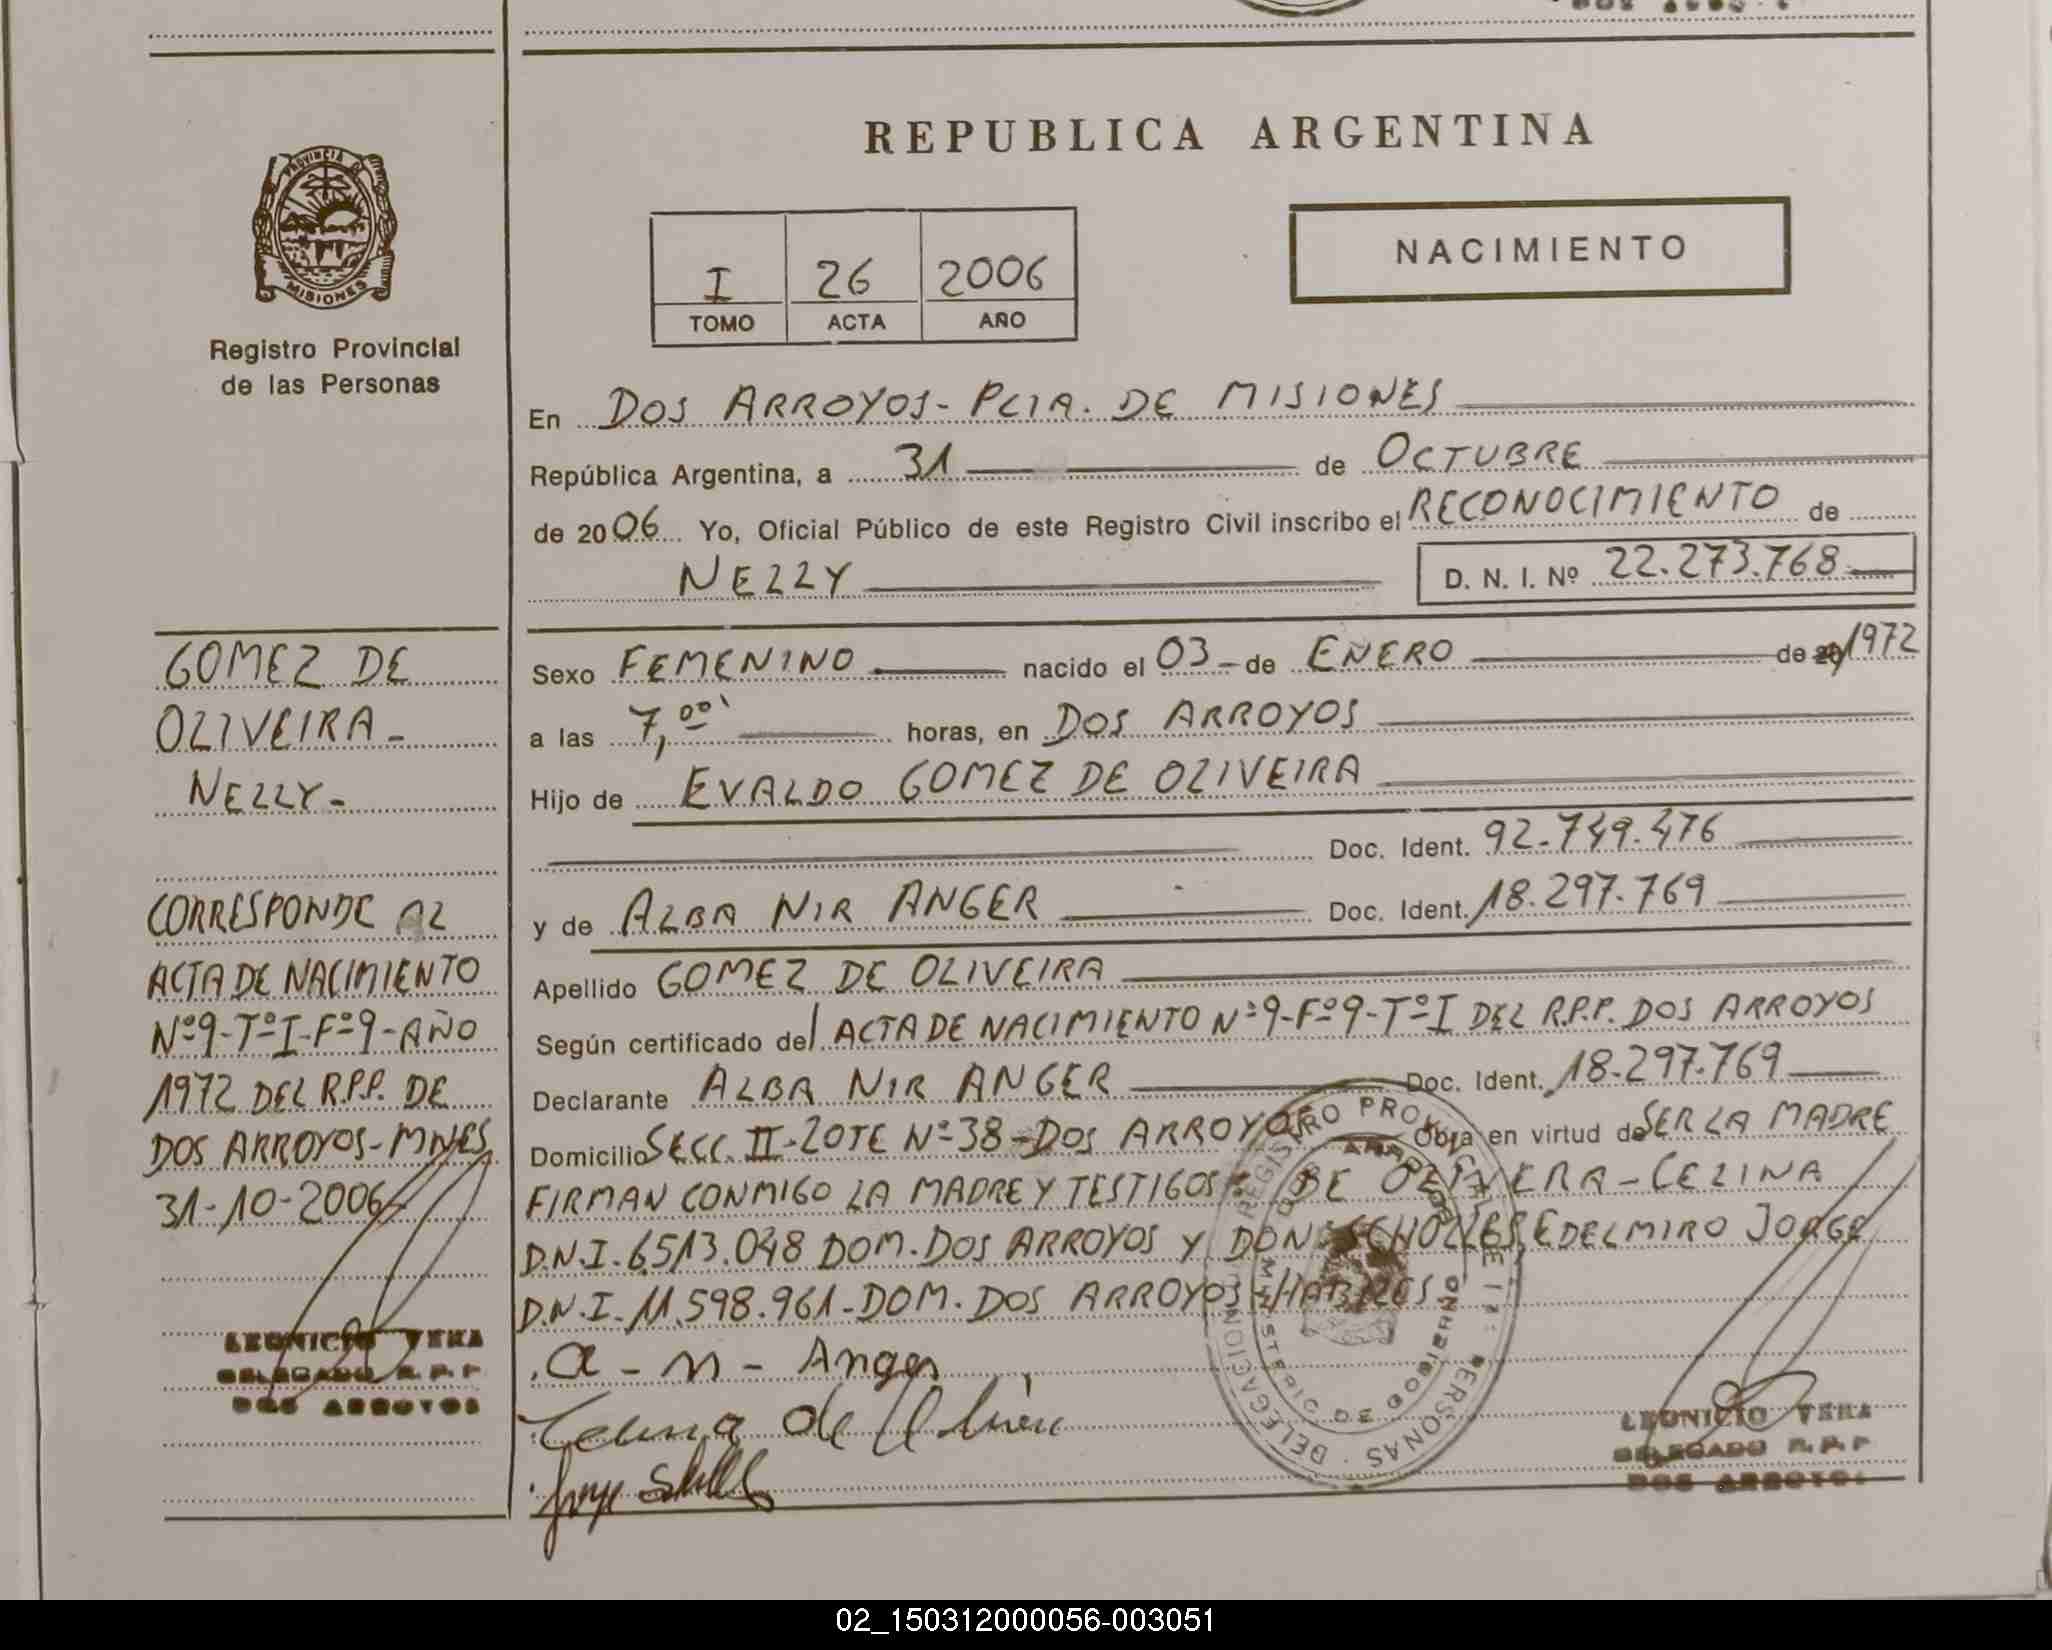 REPUBLICA ARGENTINA
PROVINCIA DE
MISIONES
Registro Provincial
de las Personas
I 26 2006
TOMO ACTA AÑO
NACIMIENTO
En DOS ARROYOS - PCIA. DE MISIONES
República Argentina, a 31 de OCTUBRE
de 2006 Yo, Oficial Público de este Registro Civil inscribo el RECONOCIMIENTO de
NELLY D. N. I. Nº 22.273.768
Sexo FEMENINO nacido el 03 - de ENERO de 1972
a las 7,00 horas, en DOS ARROYOS
Hijo de EVALDO GOMEZ DE OLIVEIRA
Doc. Ident. 92.749.476
y de ALBA NIR ANGER Doc. Ident. 18.297.769
Apellido GOMEZ DE OLIVEIRA
Según certificado del ACTA DE NACIMIENTO Nº9-Fº9-TºI DEL R.P.P. DOS ARROYOS
Declarante ALBA NIR ANGER Doc. Ident. 18.297.769
Domicilio SECC. II - LOTE Nº 38 - DOS ARROYOS Obra en virtud de SER LA MADRE
FIRMAN CONMIGO LA MADRE Y TESTIGOS: DE OLIVERA - CELINA
D.N.I. 6.513.048 DOM. DOS ARROYOS Y DON EDELMIRO JORGE
D.N.I. 11.598.961 - DOM. DOS ARROYOS - HABILES
a - n - Anger
Celina de
Jorge
GOMEZ DE
OLIVEIRA -
NELLY -
CORRESPONDE AL
ACTA DE NACIMIENTO
Nº9-TºI-Fº9-AÑO
1972 DEL R.P.P. DE
DOS ARROYOS - MNES
31-10-2006
LEONICIO VERA
DELEGADO R.P.P
DOS ARROYOS
REGISTRO PROVINCIAL DE LAS PERSONAS · DELEGACION
MINISTERIO DE GOBIERNO
LEONICIO VERA
DELEGADO R.P.P
DOS ARROYOS
02_150312000056-003051